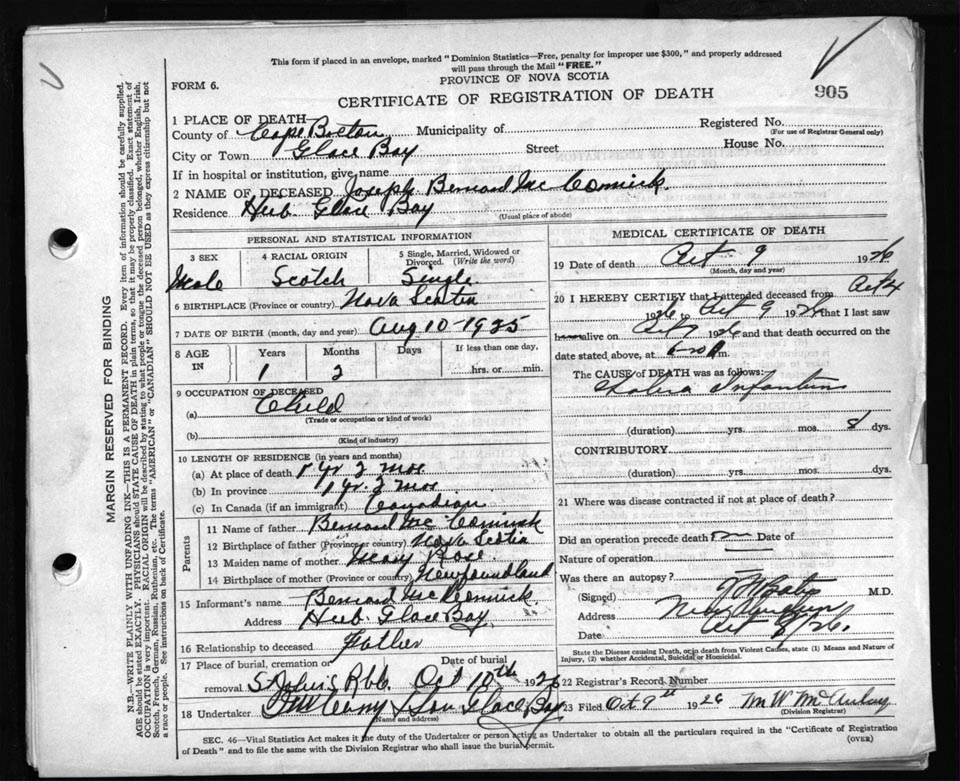 This form if placed in an envelope, marked "Dominion Statistics—Free, penalty for improper use $300," and properly addressed
will pass through the Mail "FREE."
PROVINCE OF NOVA SCOTIA
FORM 6.
905
CERTIFICATE OF REGISTRATION OF DEATH
1 PLACE OF DEATH
Registered No.
(For use of Registrar General only)
County of Cape Breton Municipality of
City or Town Glace Bay Street House No.
If in hospital or institution, give name
2 NAME OF DECEASED Joseph Bernard McCormick.
Residence Hub. Glace Bay
(Usual place of abode)
PERSONAL AND STATISTICAL INFORMATION
3 SEX
Male
4 RACIAL ORIGIN
Scotch
5 Single, Married, Widowed or Divorced. (Write the word)
Single
6 BIRTHPLACE (Province or country) Nova Scotia
7 DATE OF BIRTH (month, day and year) Aug 10-1925
8 AGE IN
Years Months Days If less than one day,
1 2 hrs. or min.
9 OCCUPATION OF DECEASED
(a) Child
(Trade or occupation or kind of work)
(b)
(Kind of industry)
10 LENGTH OF RESIDENCE (in years and months)
(a) At place of death 1 yr 2 mos.
(b) In province 1 yr. 2 mos
(c) In Canada (if an immigrant) Canadian
Parents
11 Name of father Bernard McCormick
12 Birthplace of father (Province or country) Nova Scotia
13 Maiden name of mother Mary Rose
14 Birthplace of mother (Province or country) Newfoundland
15 Informant's name Bernard McCormick
Address Hub. Glace Bay.
16 Relationship to deceased Father
17 Place of burial, cremation or Date of burial
removal St John's Oct 10th 1926
18 Undertaker & Son Glace Bay
(Name and address)
MEDICAL CERTIFICATE OF DEATH
19 Date of death Oct 9 1926
(Month, day and year)
20 I HEREBY CERTIFY that I attended deceased from Oct 4
1926 to Oct 9 1926 that I last saw
h alive on Oct 9 1926 and that death occurred on
date stated above, at m.
The CAUSE OF DEATH was as follows:
Cholera Infantum
(duration) yrs. mos. 8 dys.
CONTRIBUTORY.
(duration) yrs. mos. dys.
21 Where was disease contracted if not at place of death?
Did an operation precede death no Date of
Nature of operation
Was there an autopsy?
(Signed) M.D.
Address New Aberdeen
Date Oct 9/26.
State the Disease causing Death, or in death from Violent Causes, state (1) Means and Nature of
Injury, (2) whether Accidental, Suicidal or Homicidal.
22 Registrar's Record Number
23 Filed Oct 9th 1926 Wm W McAulay
(Division Registrar)
SEC. 46—Vital Statistics Act makes it the duty of the Undertaker or person acting as Undertaker to obtain all the particulars required in the "Certificate of Registration
of Death" and to file the same with the Division Registrar who shall issue the burial permit.
(OVER)
MARGIN RESERVED FOR BINDING
N.B.—WRITE PLAINLY WITH UNFADING INK—THIS IS A PERMANENT RECORD. Every item of information should be carefully supplied.
AGE should be stated EXACTLY. PHYSICIANS should STATE CAUSE OF DEATH in plain terms, so that it may be properly classified. Exact statement of
OCCUPATION is very important. RACIAL ORIGIN will be described by stating to what people or tongue the deceased person belonged, whether English, Irish,
Scotch, French, German, Russian, Ruthenian, etc. The terms "AMERICAN" or "CANADIAN" SHOULD NOT BE USED as they express citizenship but not
a race or people. See instructions on back of Certificate.